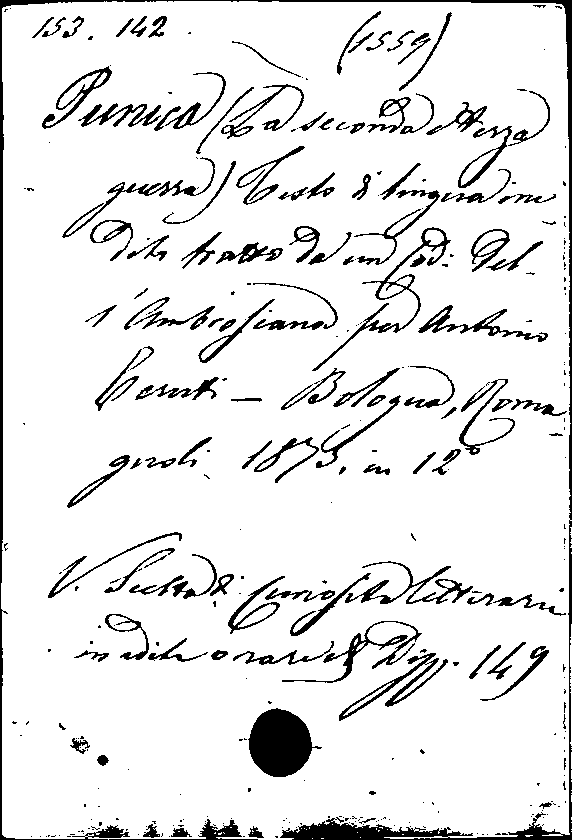 153. 142.
(1559)
Punica (La seconda e terza
guerra) Testo di lingua ine-
dito tratto da un Cod: del-
l'Ambrosiana per Antonio
Ceruti — Bologna, Roma-
gnoli 1875, in 12°
V. Scelta di Curiosità letterarie
inedite o rare & Disp. 149